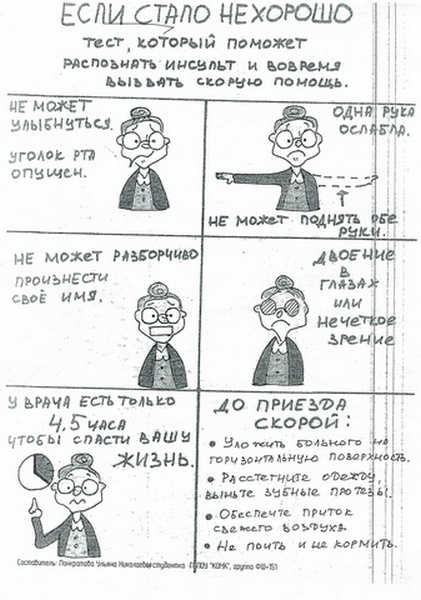 ЕСЛИ СТАЛО НЕХОРОШО
ТЕСТ, КОТОРЫЙ ПОМОЖЕТ
РАСПОЗНАТЬ ИНСУЛЬТ И ВОВРЕМЯ
ВЫЗВАТЬ СКОРУЮ ПОМОЩЬ.
НЕ МОЖЕТ
УЛЫБНУТЬСЯ.
УГОЛОК РТА
ОПУЩЕН.
ОДНА РУКА
ОСЛАБЛА.
НЕ МОЖЕТ ПОДНЯТЬ ОБЕ
РУКИ.
НЕ МОЖЕТ РАЗБОРЧИВО
ПРОИЗНЕСТИ
СВОЁ ИМЯ.
ДВОЕНИЕ
В
ГЛАЗАХ
ИЛИ
НЕЧЕТКОЕ
ЗРЕНИЕ
У ВРАЧА ЕСТЬ ТОЛЬКО
4,5 ЧАСА
ЧТОБЫ СПАСТИ ВАШУ
ЖИЗНЬ.
ДО ПРИЕЗДА
СКОРОЙ:
• Уложить больного на
горизонтальную поверхность.
• Расстегните одежду,
выньте зубные протезы.
• Обеспечте приток
свежего воздуха
• Не поить и не кормить.
Составитель: Панкратова Ульяна Николаевна студентка "КОМК", группа ФШ-151